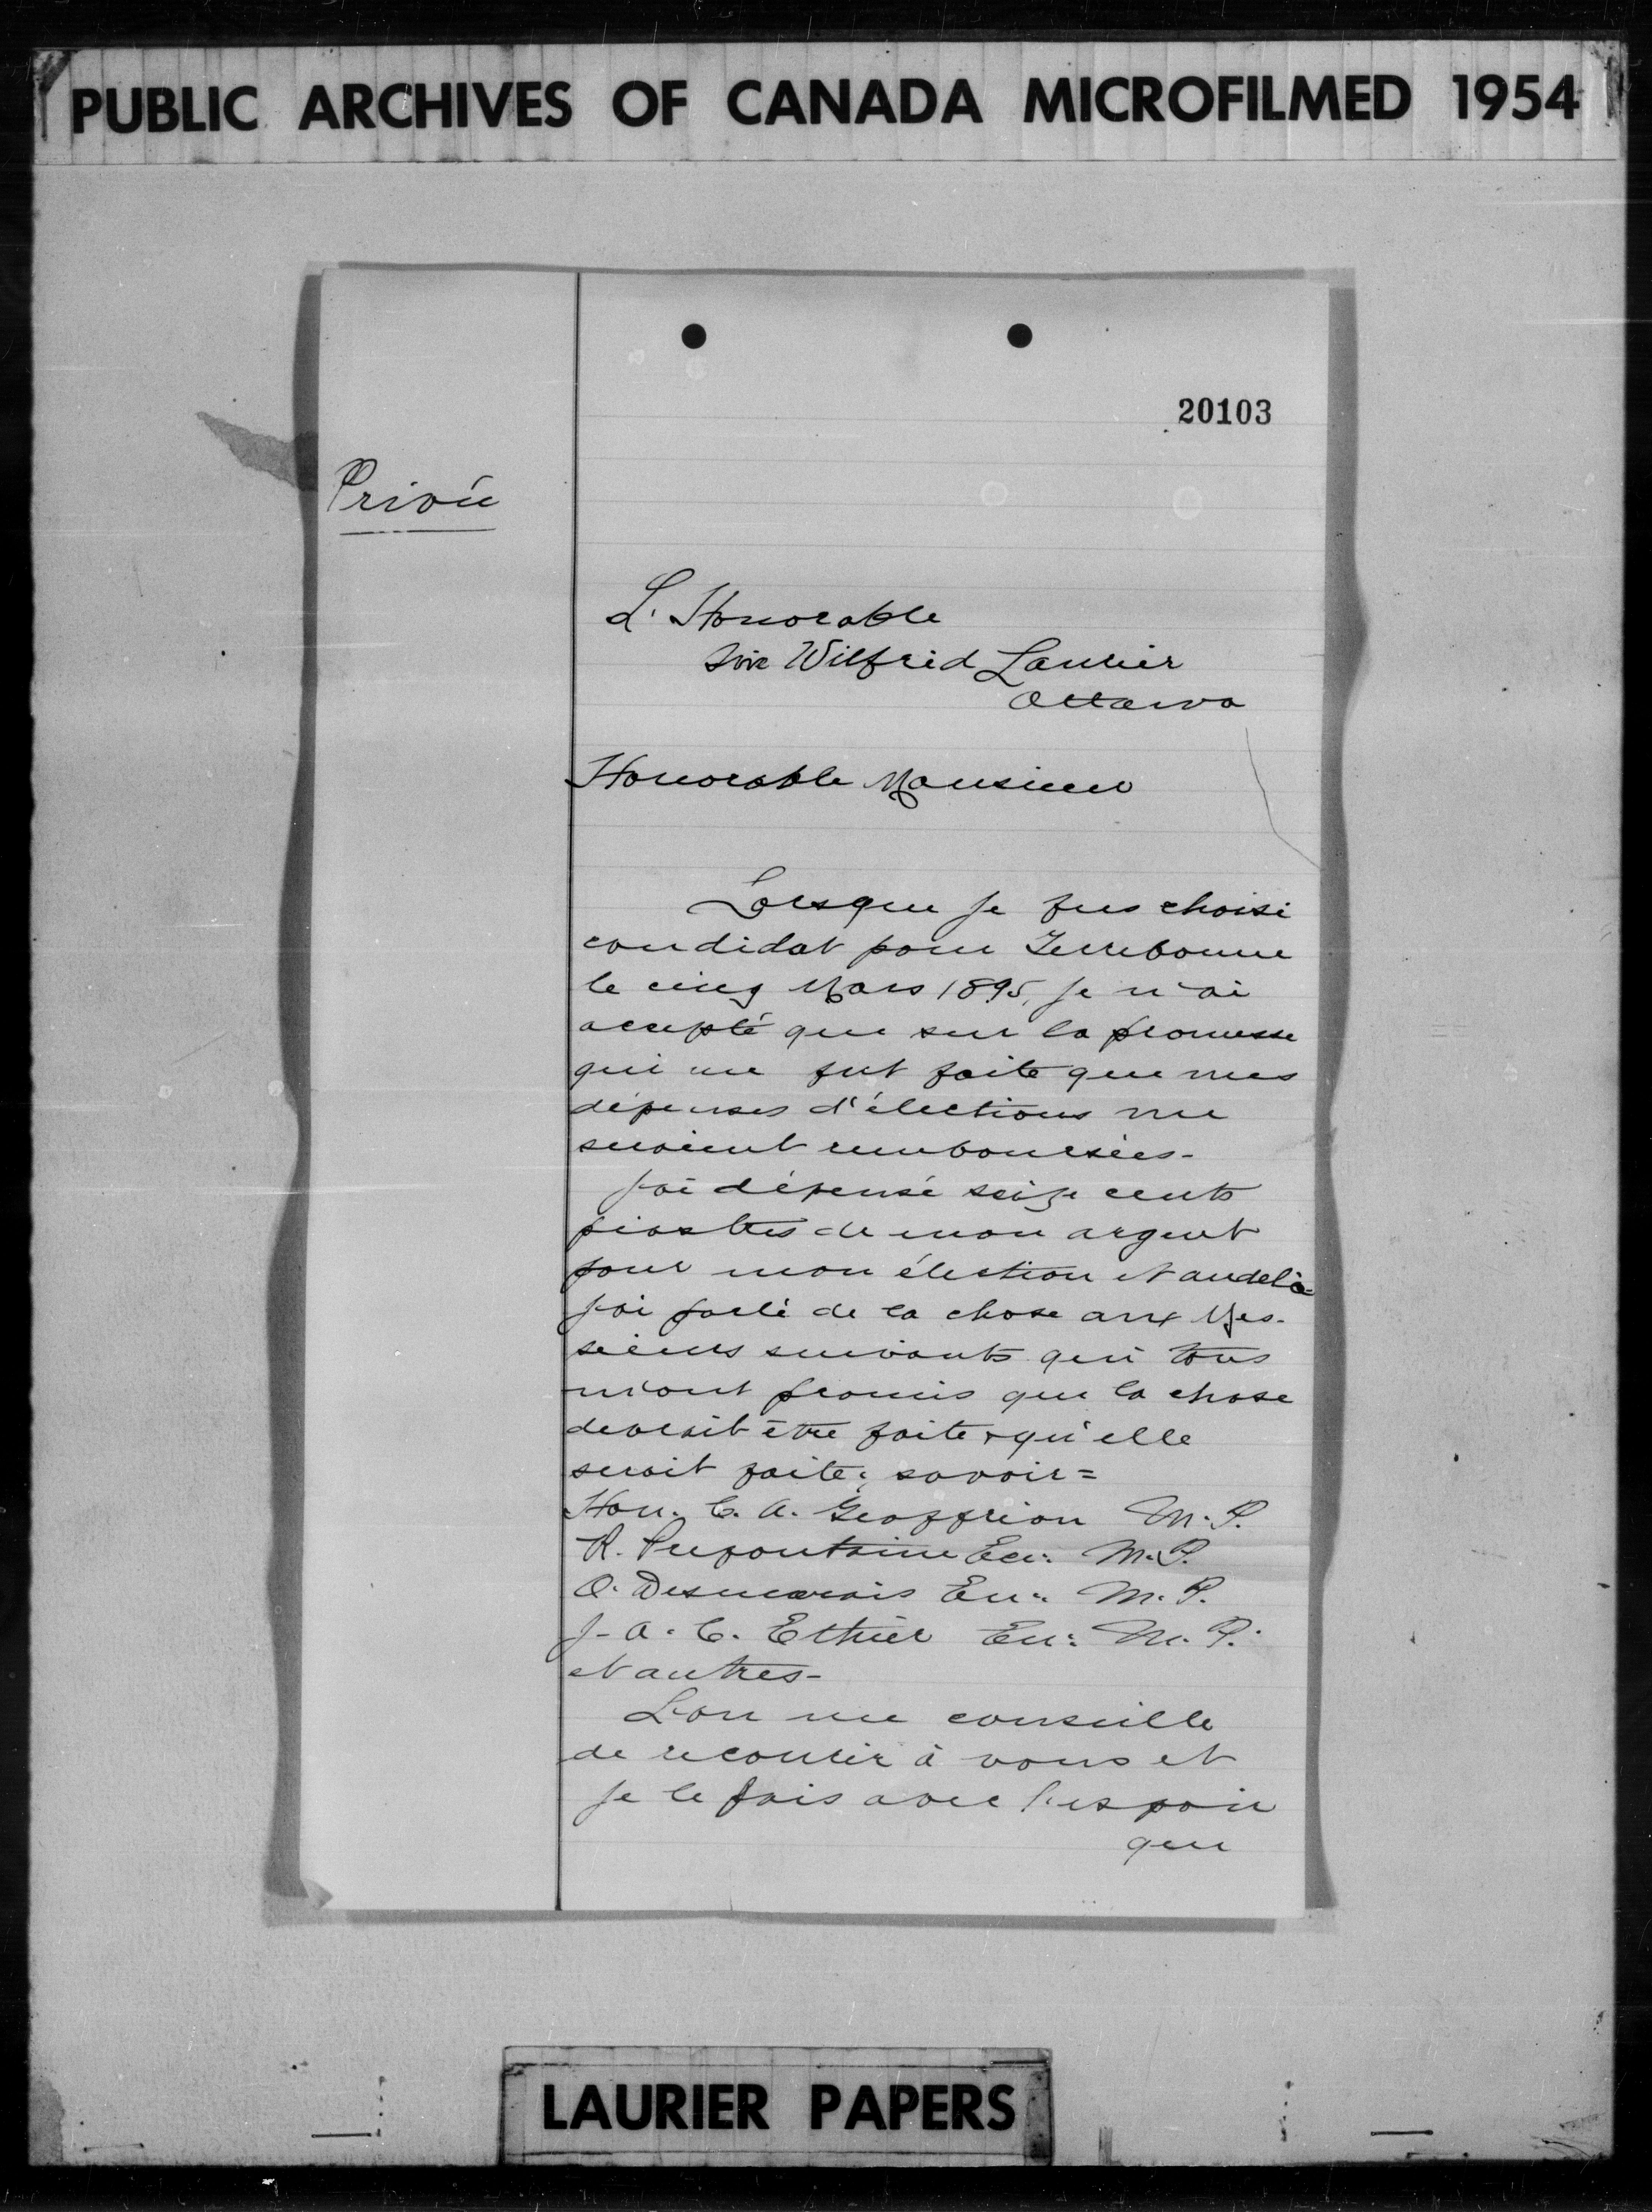 PUBLIC ARCHIVES OF CANADA MICROFILMED 1954
20103
Privée
L'Honorable
Sir Wilfrid Laurier
Ottawa
Honorable Monsieur
Lorsque je fus choisi
candidat pour Terrebonne
le cinq Mars 1895, je n'ai
accepté que sur la promesse
qui me fut faite que mes
dépenses d'élections me
seraient remboursées-
J'ai dépensé seize cents
piastres de mon argent
pour mon élection et audelà-
J'ai parlé de la chose aux Mes-
sieurs suivants qui tous
m'ont promis que la chose
devrait être faite & qu'elle
serait faite; savoir=
Hon. C. A. Geoffrion M.P.
R. Prefontaine Ecr. M.P.
O. Desmarais Ecr. M.P.
J-A. C. Ethier Ecr. M.P.
et autres-
L'on me conseille
de recourir à vous et
je le fais avec l'espoir
que
LAURIER PAPERS